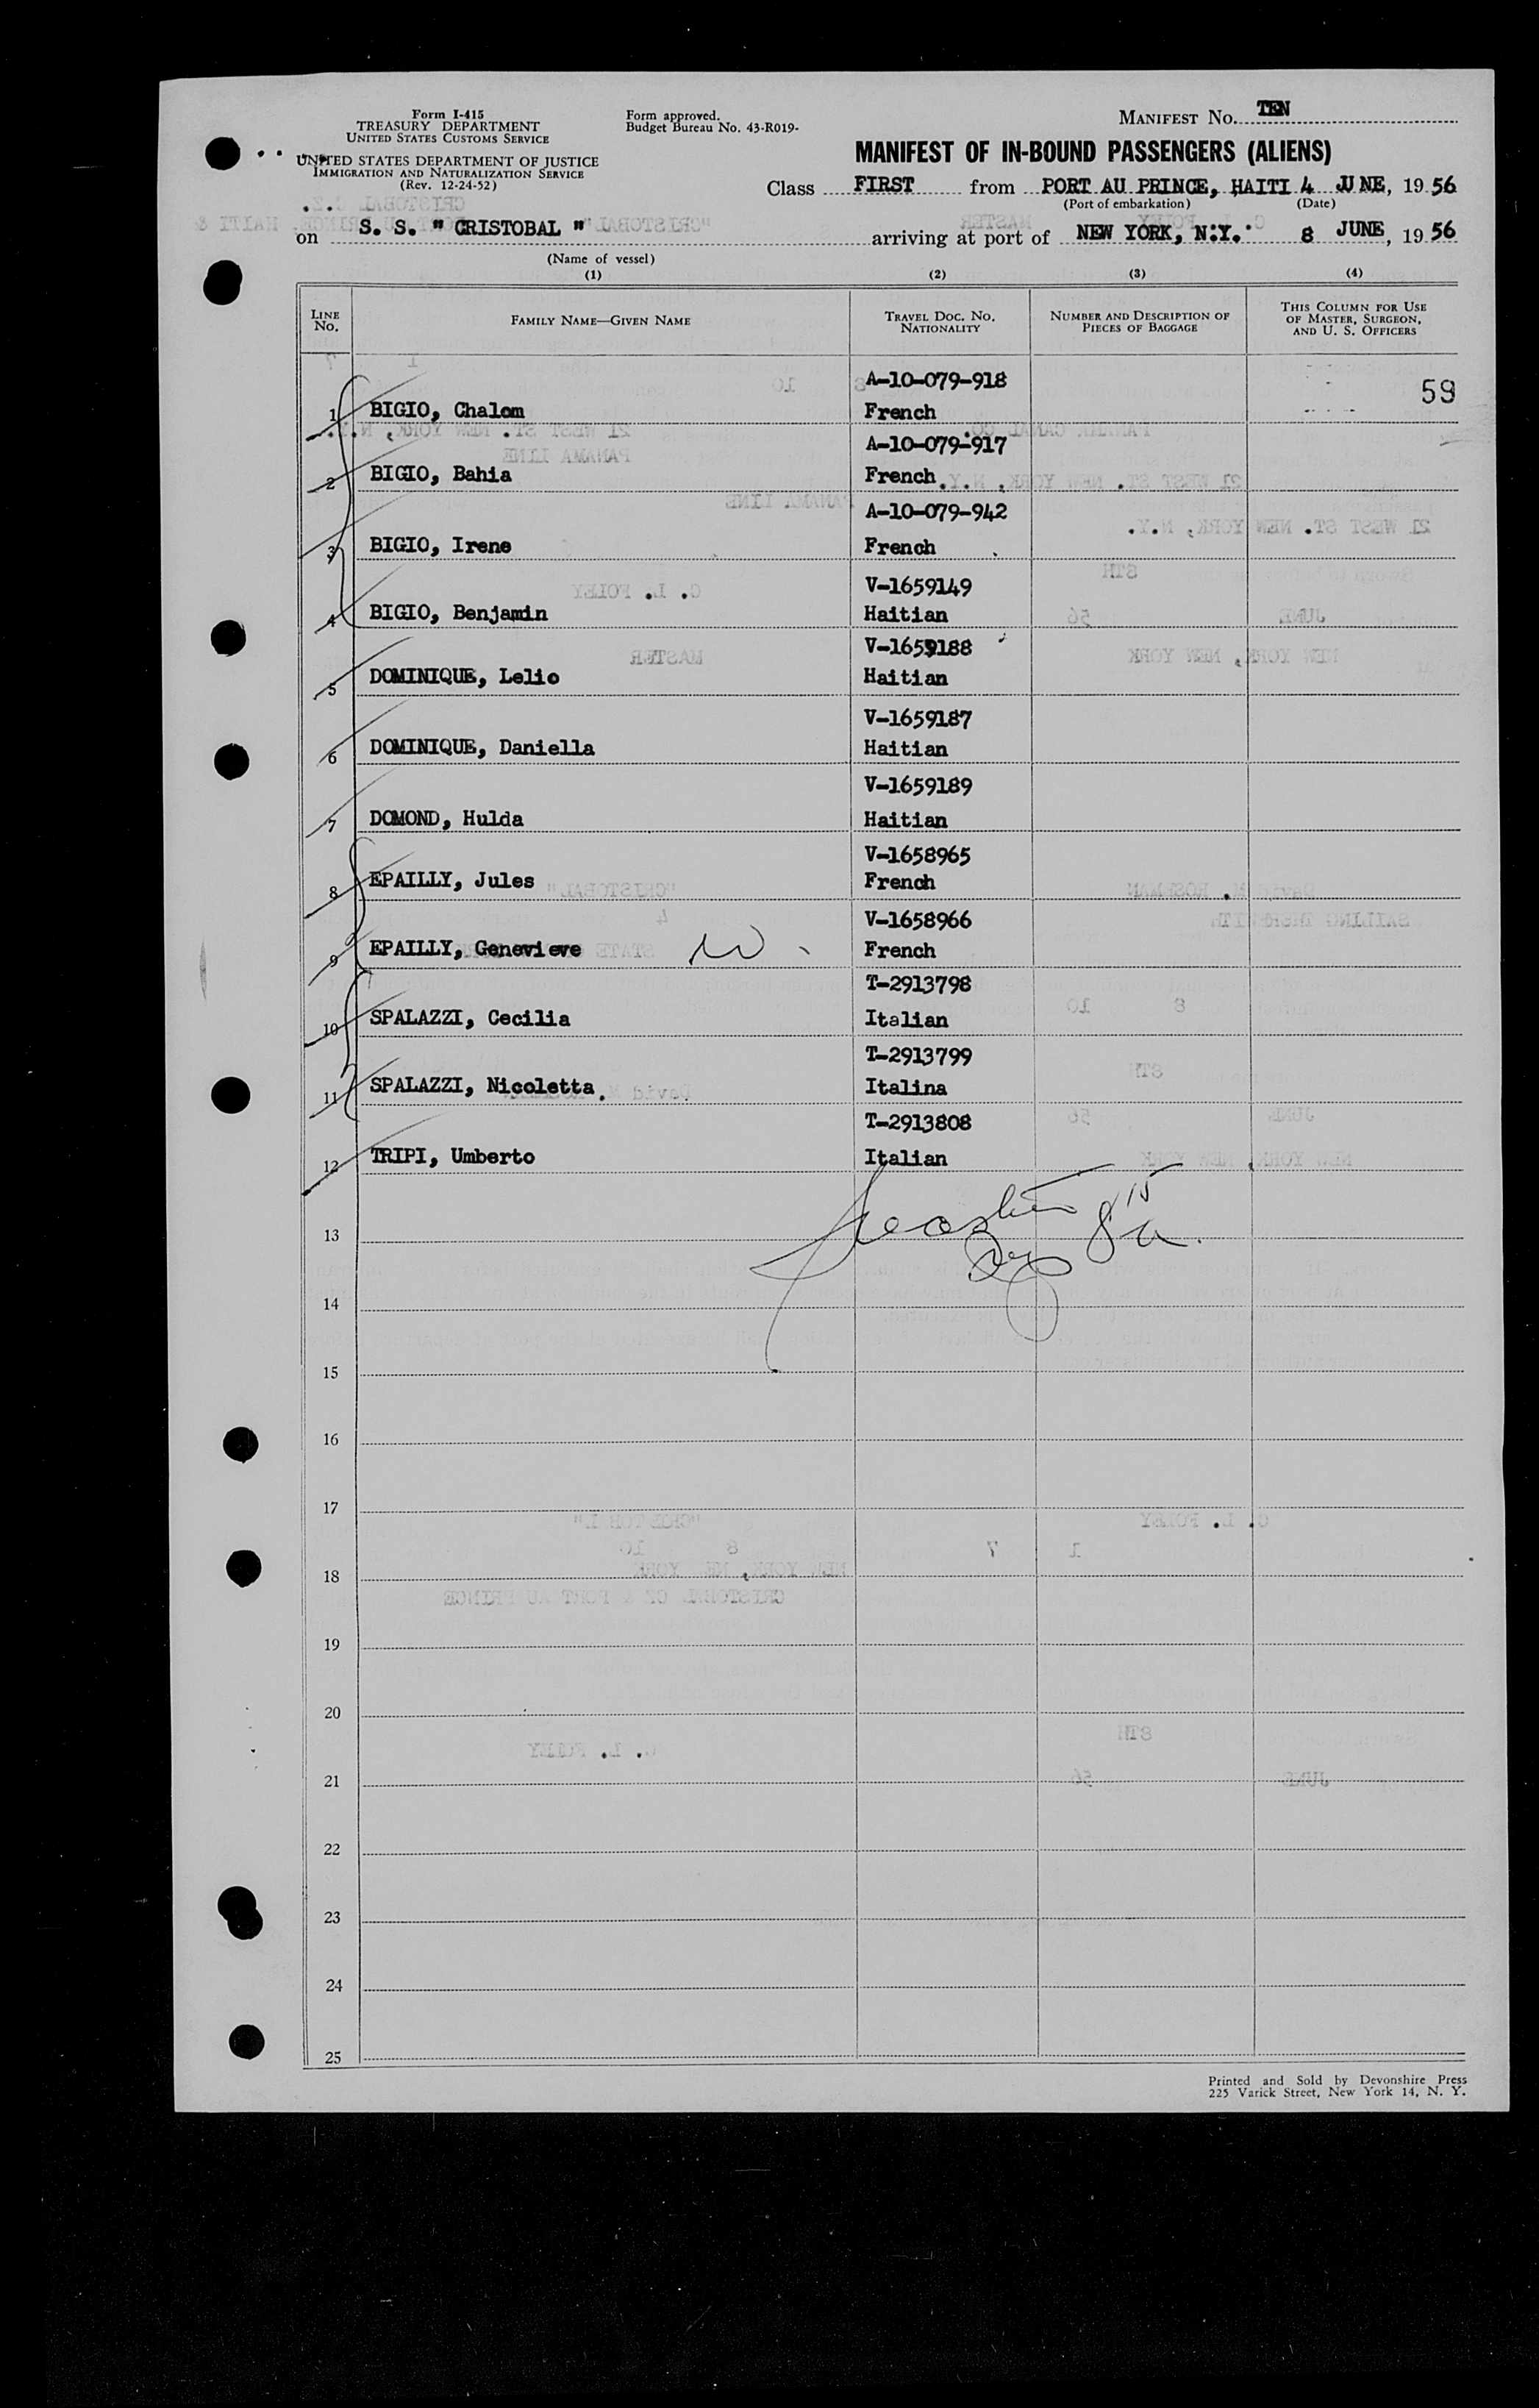 Form I-415
TREASURY DEPARTMENT
UNITED STATES CUSTOMS SERVICE
UNITED STATES DEPARTMENT OF JUSTICE
IMMIGRATION AND NATURALIZATION SERVICE
(Rev. 12-24-52)
Form approved.
Budget Bureau No. 43-R019-
MANIFEST No. TEN
MANIFEST OF IN-BOUND PASSENGERS (ALIENS)
Class FIRST from PORT AU PRINCE, HAITI 4 JUNE, 1956
(Port of embarkation) (Date)
on S. S. " CRISTOBAL " arriving at port of NEW YORK, N.Y. 8 JUNE, 1956
(Name of vessel)
(1) (2) (3) (4)
LINE No. FAMILY NAME—GIVEN NAME TRAVEL DOC. NO. NATIONALITY NUMBER AND DESCRIPTION OF PIECES OF BAGGAGE THIS COLUMN FOR USE OF MASTER, SURGEON, AND U. S. OFFICERS
A-10-079-918 59
1 BIGIO, Chalom French
A-10-079-917
2 BIGIO, Bahia French
A-10-079-942
3 BIGIO, Irene French
V-1659149
4 BIGIO, Benjamin Haitian
V-1659188
5 DOMINIQUE, Lelio Haitian
V-1659187
6 DOMINIQUE, Daniella Haitian
V-1659189
7 DOMOND, Hulda Haitian
V-1658965
8 EPAILLY, Jules French
V-1658966
9 EPAILLY, Genevieve French
T-2913798
10 SPALAZZI, Cecilia Italian
T-2913799
11 SPALAZZI, Nicoletta. Italina
T-2913808
12 TRIPI, Umberto Italian
13
14
15
16
17
18
19
20
21
22
23
24
25
Printed and Sold by Devonshire Press
225 Varick Street, New York 14, N. Y.